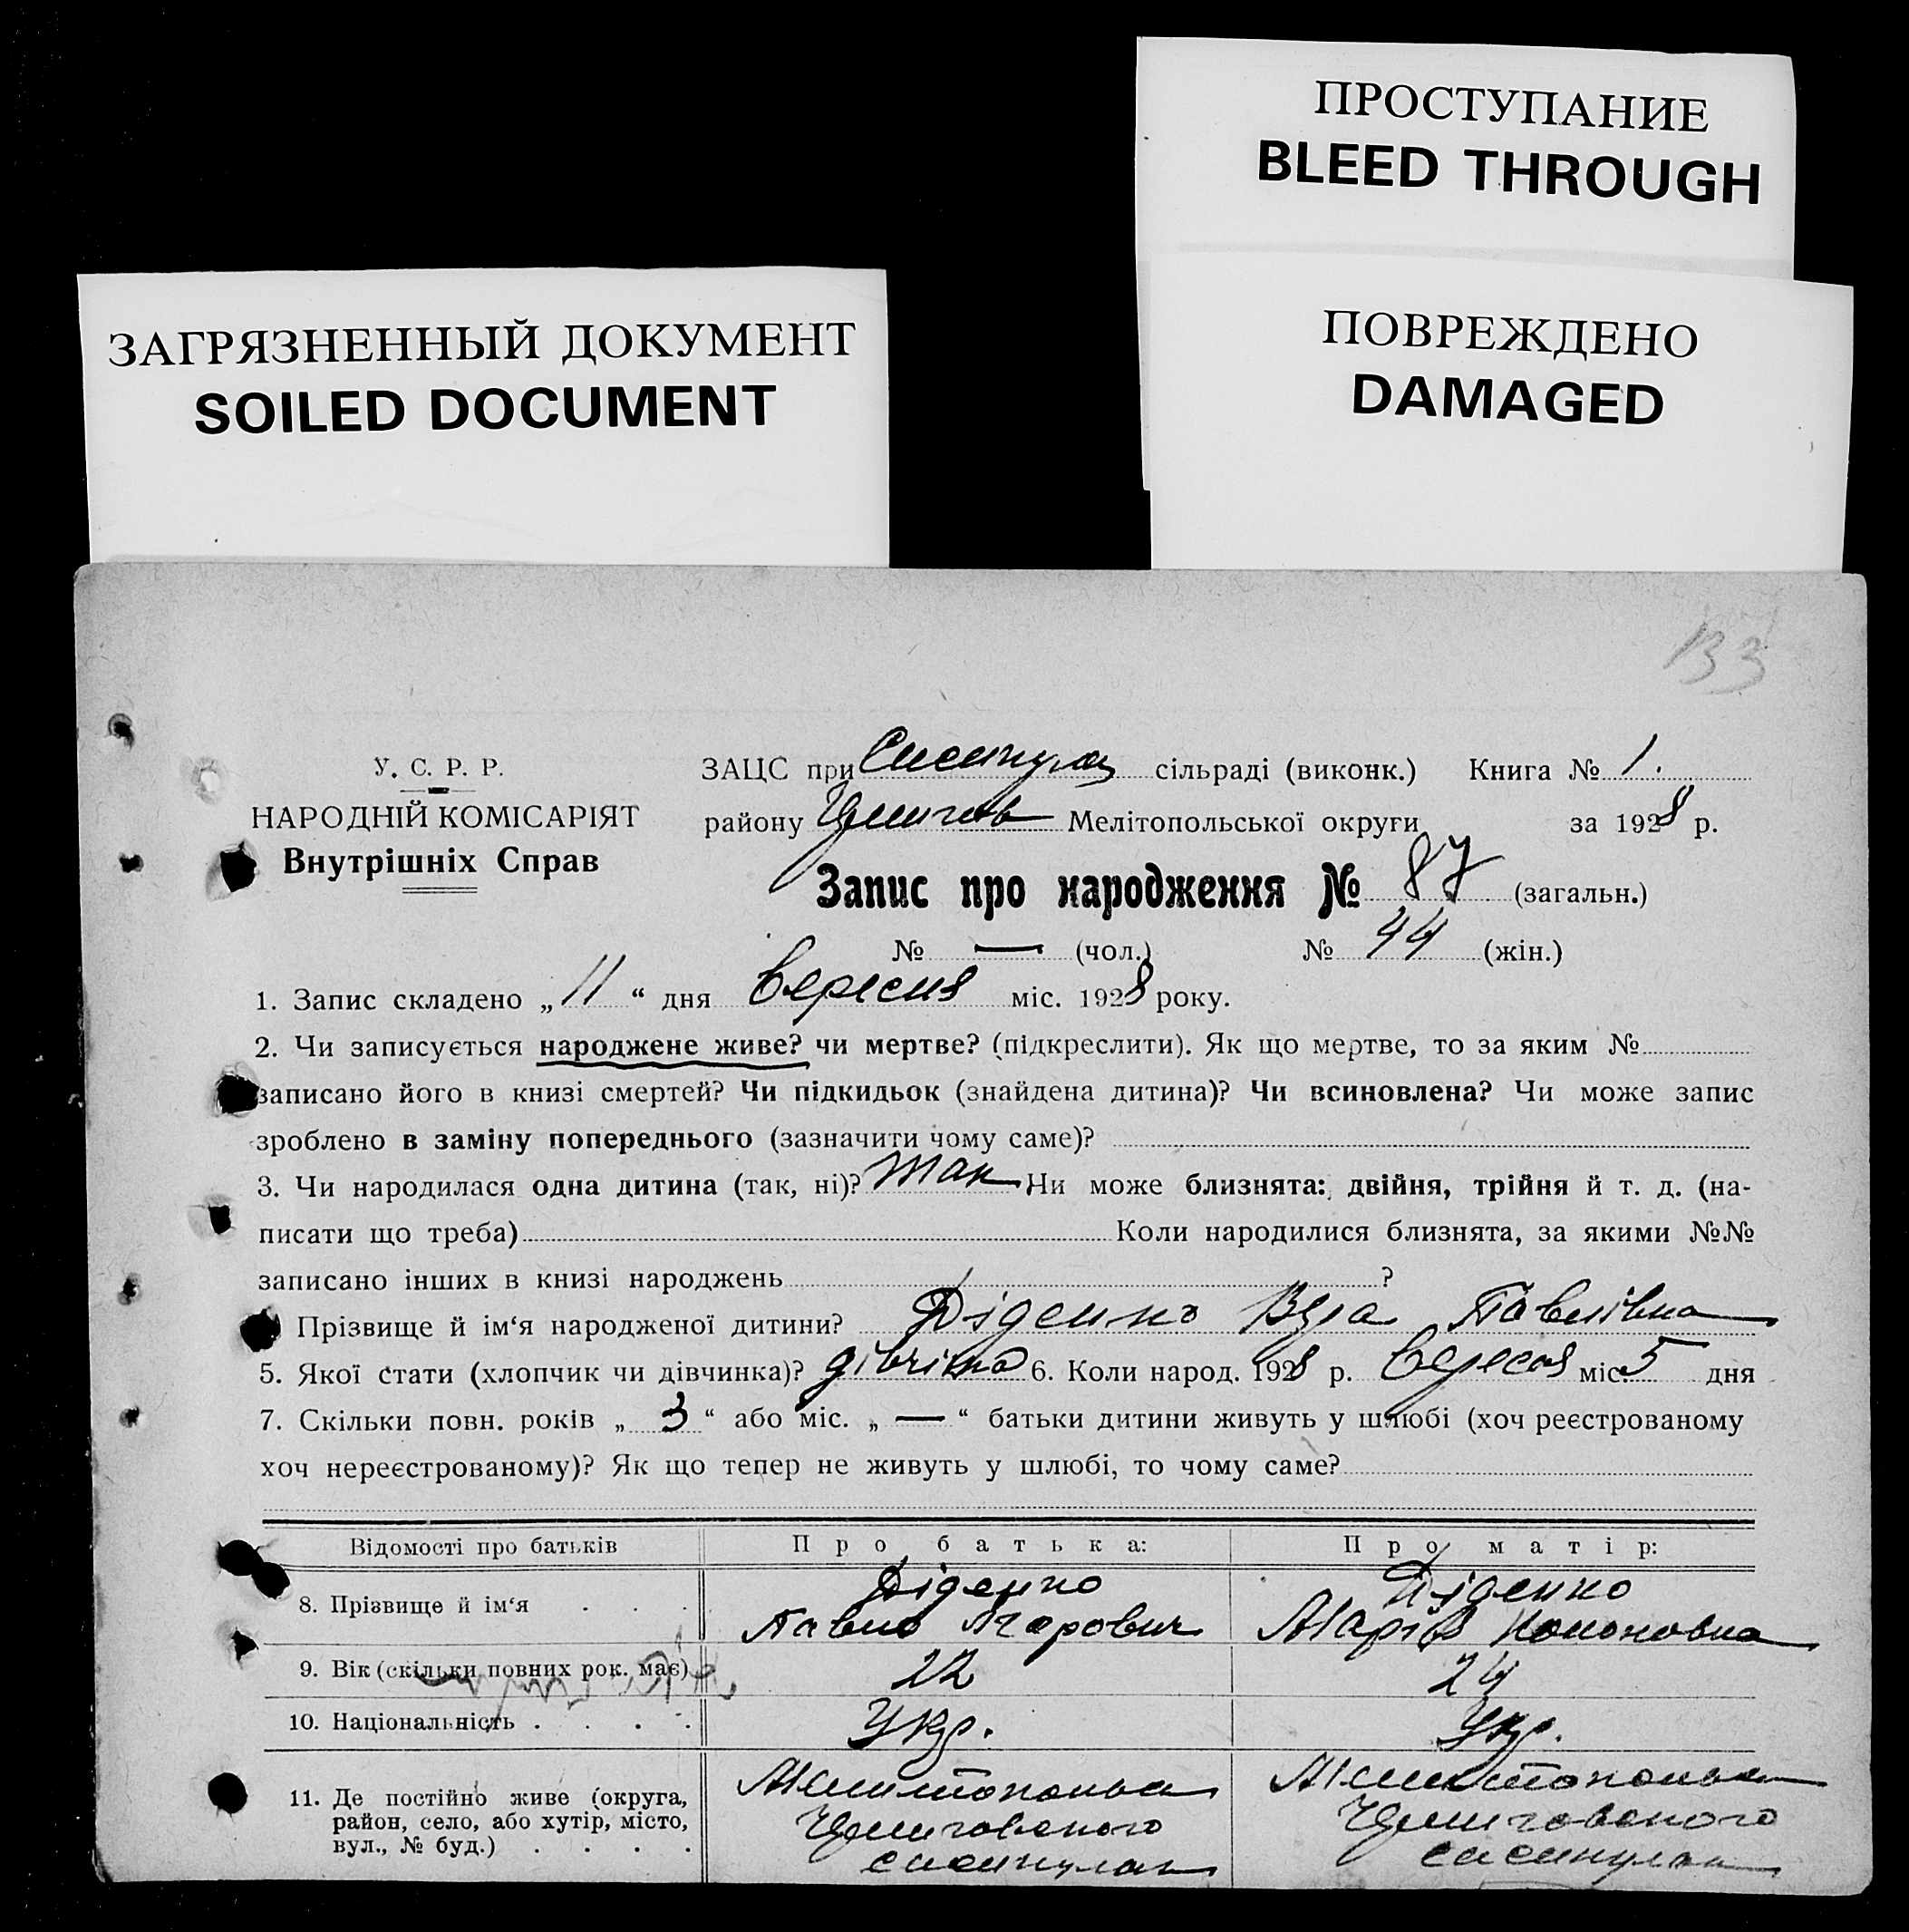 ПРОСТУПАНИЕ
BLEED THROUGH
ЗАГРЯЗНЕННЫЙ ДОКУМЕНТ
SOILED DOCUMENT
ПОВРЕЖДЕНО
DAMAGED
133
У. С. Р. Р.
НАРОДНІЙ КОМІСАРІЯТ
Внутрішніх Справ
ЗАЦС при сільраді (виконк.) Книга № 1.
району Мелітопольської округи за 1928 р.
Запис про народження № 87 (загальн.)
№ — (чол.) № 44 (жін.)
1. Запис складено „ 11 “ дня Вересня міс. 1928 року.
2. Чи записується народжене живе? чи мертве? (підкреслити). Як що мертве, то за яким №
записано його в книзі смертей? Чи підкидьок (знайдена дитина)? Чи всиновлена? Чи може запис
зроблено в заміну попереднього (зазначити чому саме)?
3. Чи народилася одна дитина (так, ні)? Так Чи може близнята: двійня, трійня й т. д. (на-
писати що треба) Коли народилися близнята, за якими №№
записано інших в книзі народжень ?
Прізвище й ім‘я народженої дитини? Діденко Віра Павлівна
5. Якої стати (хлопчик чи дівчинка)? дівчина 6. Коли народ. 1928 р. Вересня міс. 5 дня
7. Скільки повн. років „ 3 “ або міс. „ — “ батьки дитини живуть у шлюбі (хоч реєстрованому
хоч нереєстрованому)? Як що тепер не живуть у шлюбі, то чому саме?
Відомості про батьків Про батька: Про матір:
8. Прізвище й ім‘я . . . Діденко Павло Діденко Марія Кононовна
9. Вік (скільки повних рок. має) 22 24
10. Національність . . . . Укр. Укр.
11. Де постійно живе (округа,
район, село, або хутір, місто,
вул., № буд.) . . . .